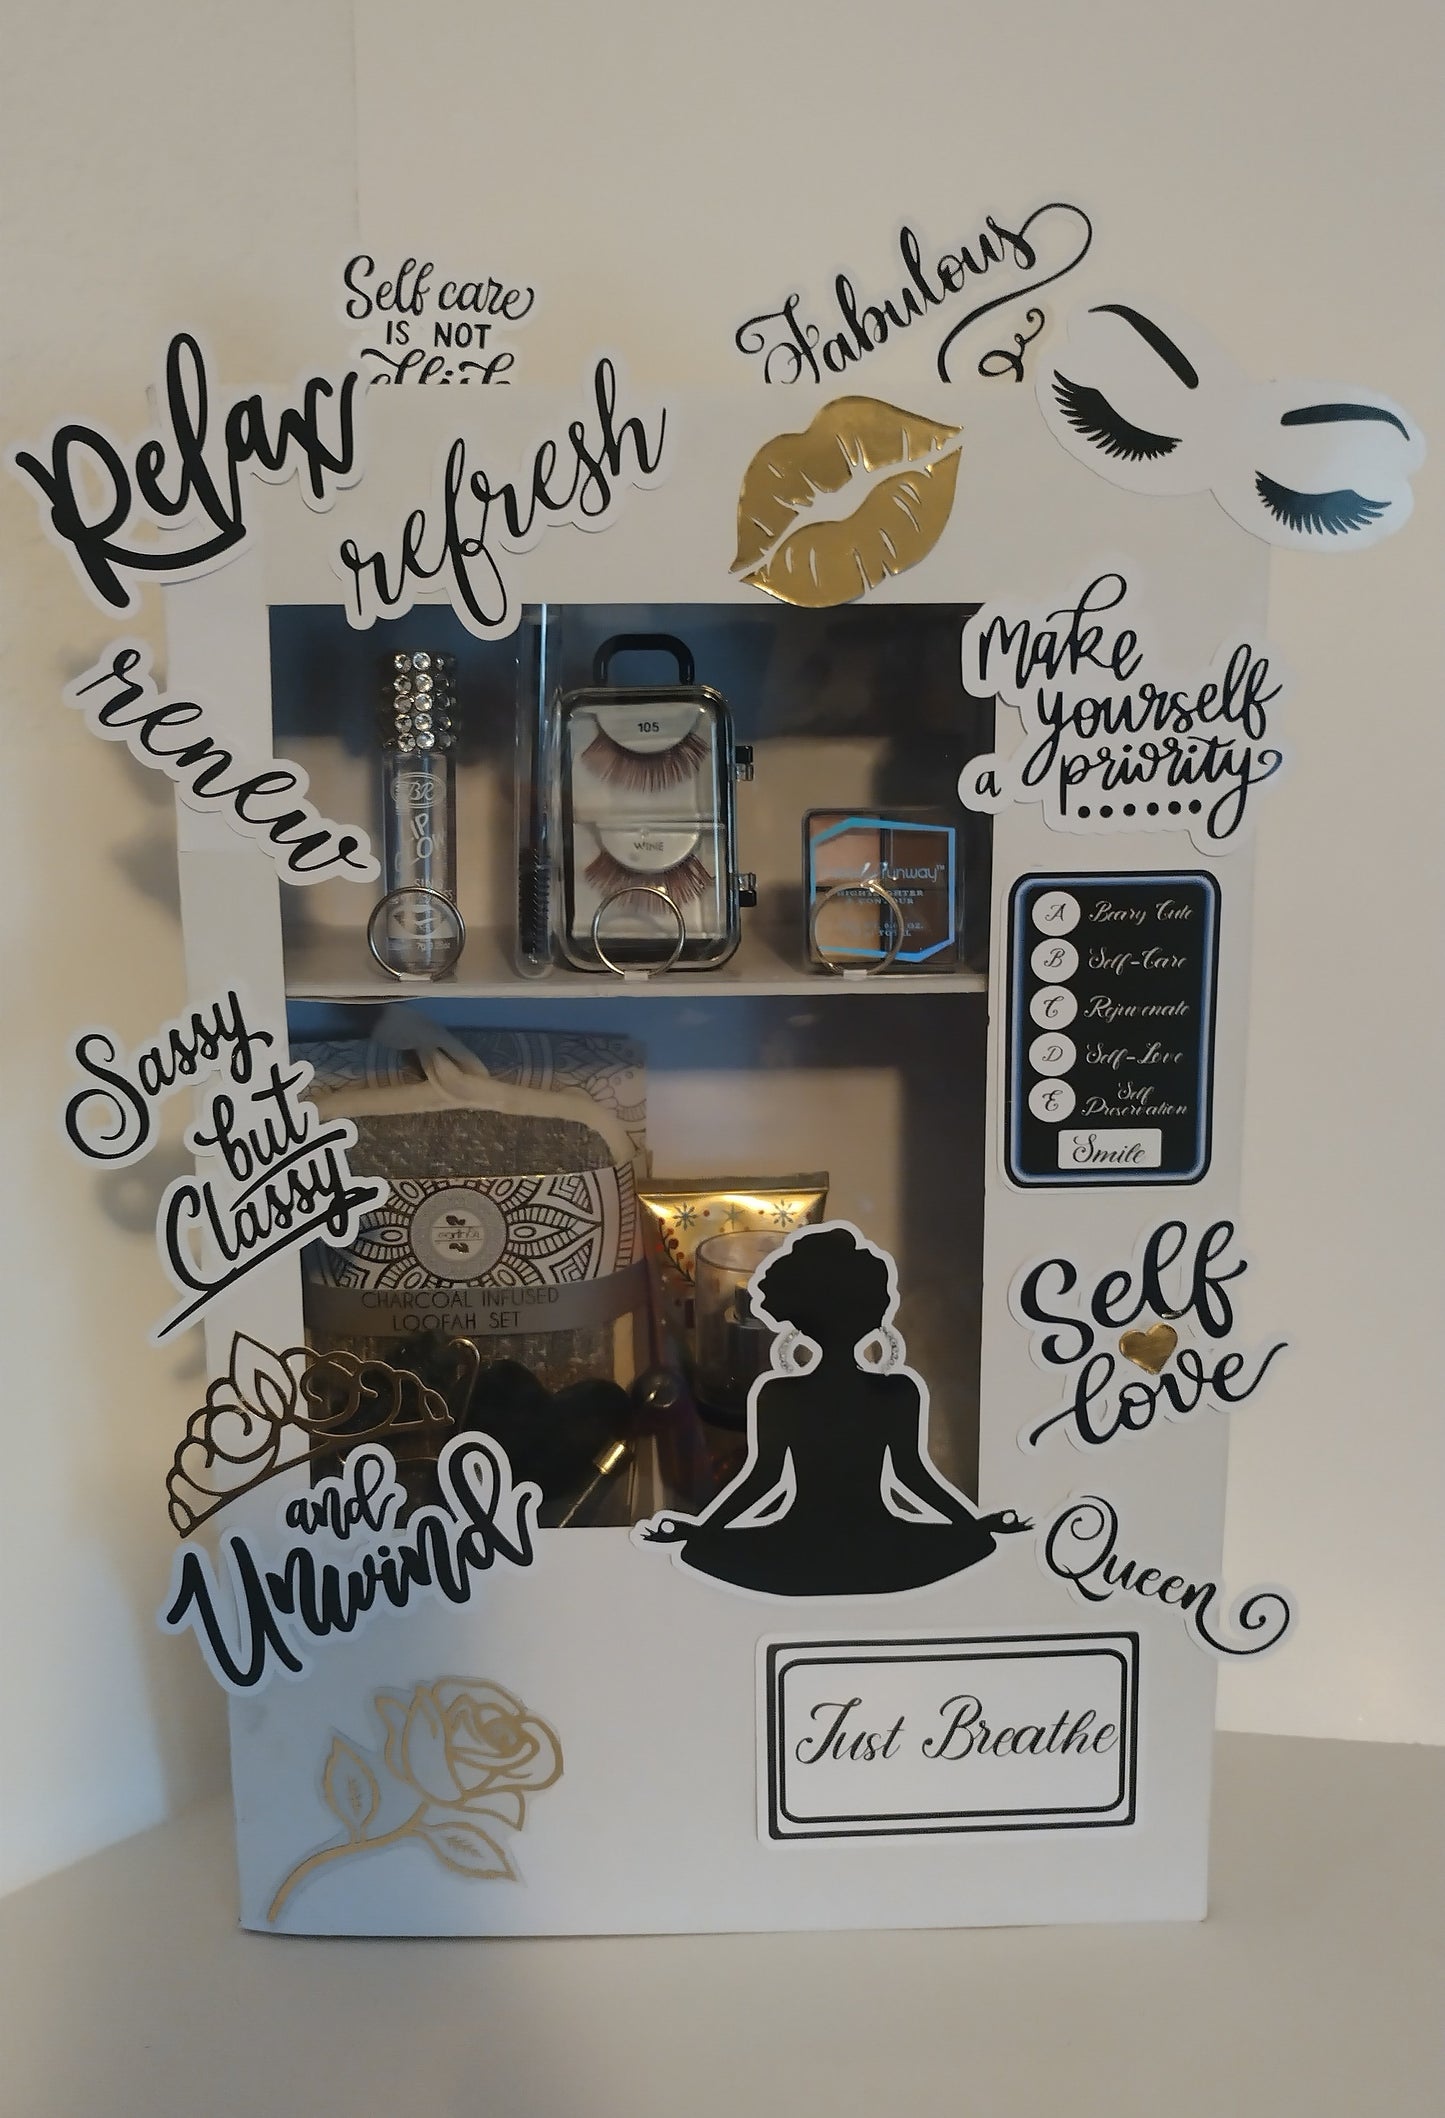 Self care
IS NOT
Fabulous
Relax
refresh
renew
make
yourself
a priority
105
WINE
BR
runway™
HIGHLIGHTER
& CONTOUR
A Beary Cute
B Self-Care
C Rejuvenate
D Self-Love
E Self
Preservation
Smile
Sassy
but
Classy
CHARCOAL INFUSED
LOOFAH SET
Self
love
and
Unwind
Queen
Just Breathe